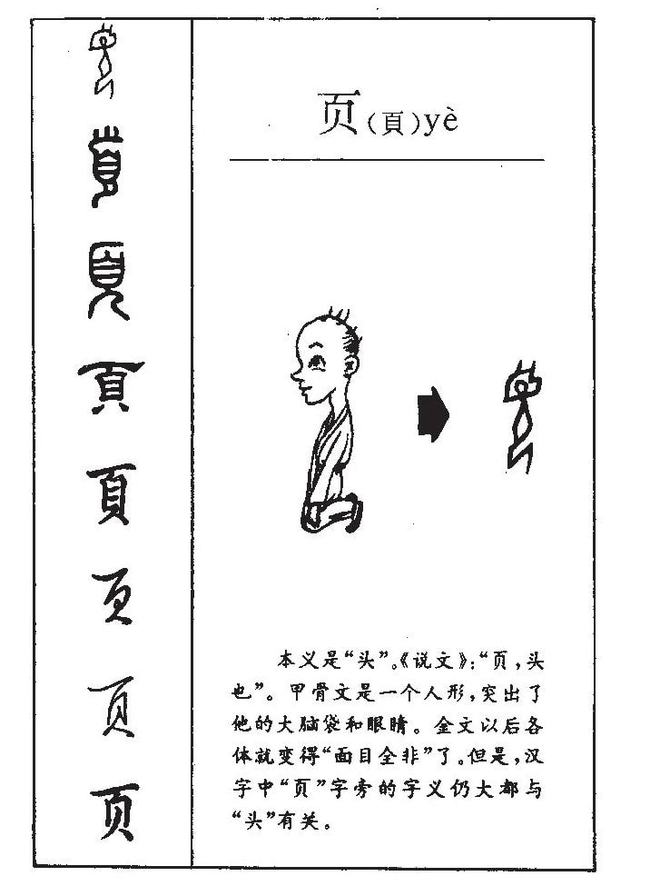 页(頁)yè
頁
頁
頁
页
页
页
本义是“头”。《说文》:“页,头
也”。甲骨文是一个人形,突出了
他的大脑袋和眼睛。金文以后各
体就变得“面目全非”了。但是,汉
字中“页”字旁的字义仍大都与
“头”有关。